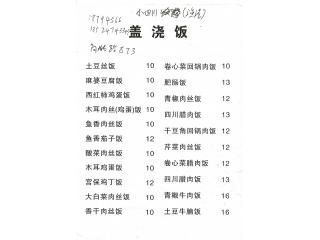 盖浇饭
土豆丝饭 10
麻婆豆腐饭 10
西红柿鸡蛋饭 10
木耳肉丝(鸡蛋)饭 10
鱼香肉丝饭 10
鱼香茄子饭 12
酸菜肉丝饭 10
木耳鸡蛋饭 10
宫保鸡丁饭 12
大白菜肉丝饭 10
香干肉丝饭 10
卷心菜回锅肉饭 10
肥肠饭 13
青椒肉丝饭 12
四川腊肉饭 13
干豆角回锅肉饭 12
芹菜肉丝饭 12
卷心菜腊肉饭 12
四川腊肉饭 13
青椒牛肉饭 16
土豆牛腩饭 16